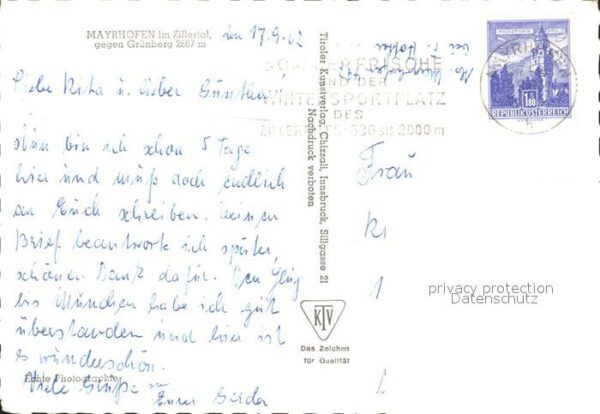 MAYRHOFEN im Zillertal,
gegen Grünberg 2867 m
im 17.9.62
Liebe Rita u. lieber Günther!
Nun bin ich schon 5 Tage
hier und muß doch endlich
an Euch schreiben. Deinen
Brief beantworte ich später,
schönen Dank dafür. Den Flug
bis München habe ich gut
überstanden und hier ist
es wunderschön.
Viele Grüße
Eure
Echte Photographie
Tiroler Kunstverlag Chizzali, Innsbruck, Sillgasse 21
Nachdruck verboten
KTV
Das Zeichen
für Qualität
SOMMERFRISCHE
UND DER
WINTERSPORTPLATZ
DES
ZILLERTALES 630 bis 2000 m
MAYRHOFEN
1.80
REPUBLIK ÖSTERREICH
Frau
privacy protection
Datenschutz